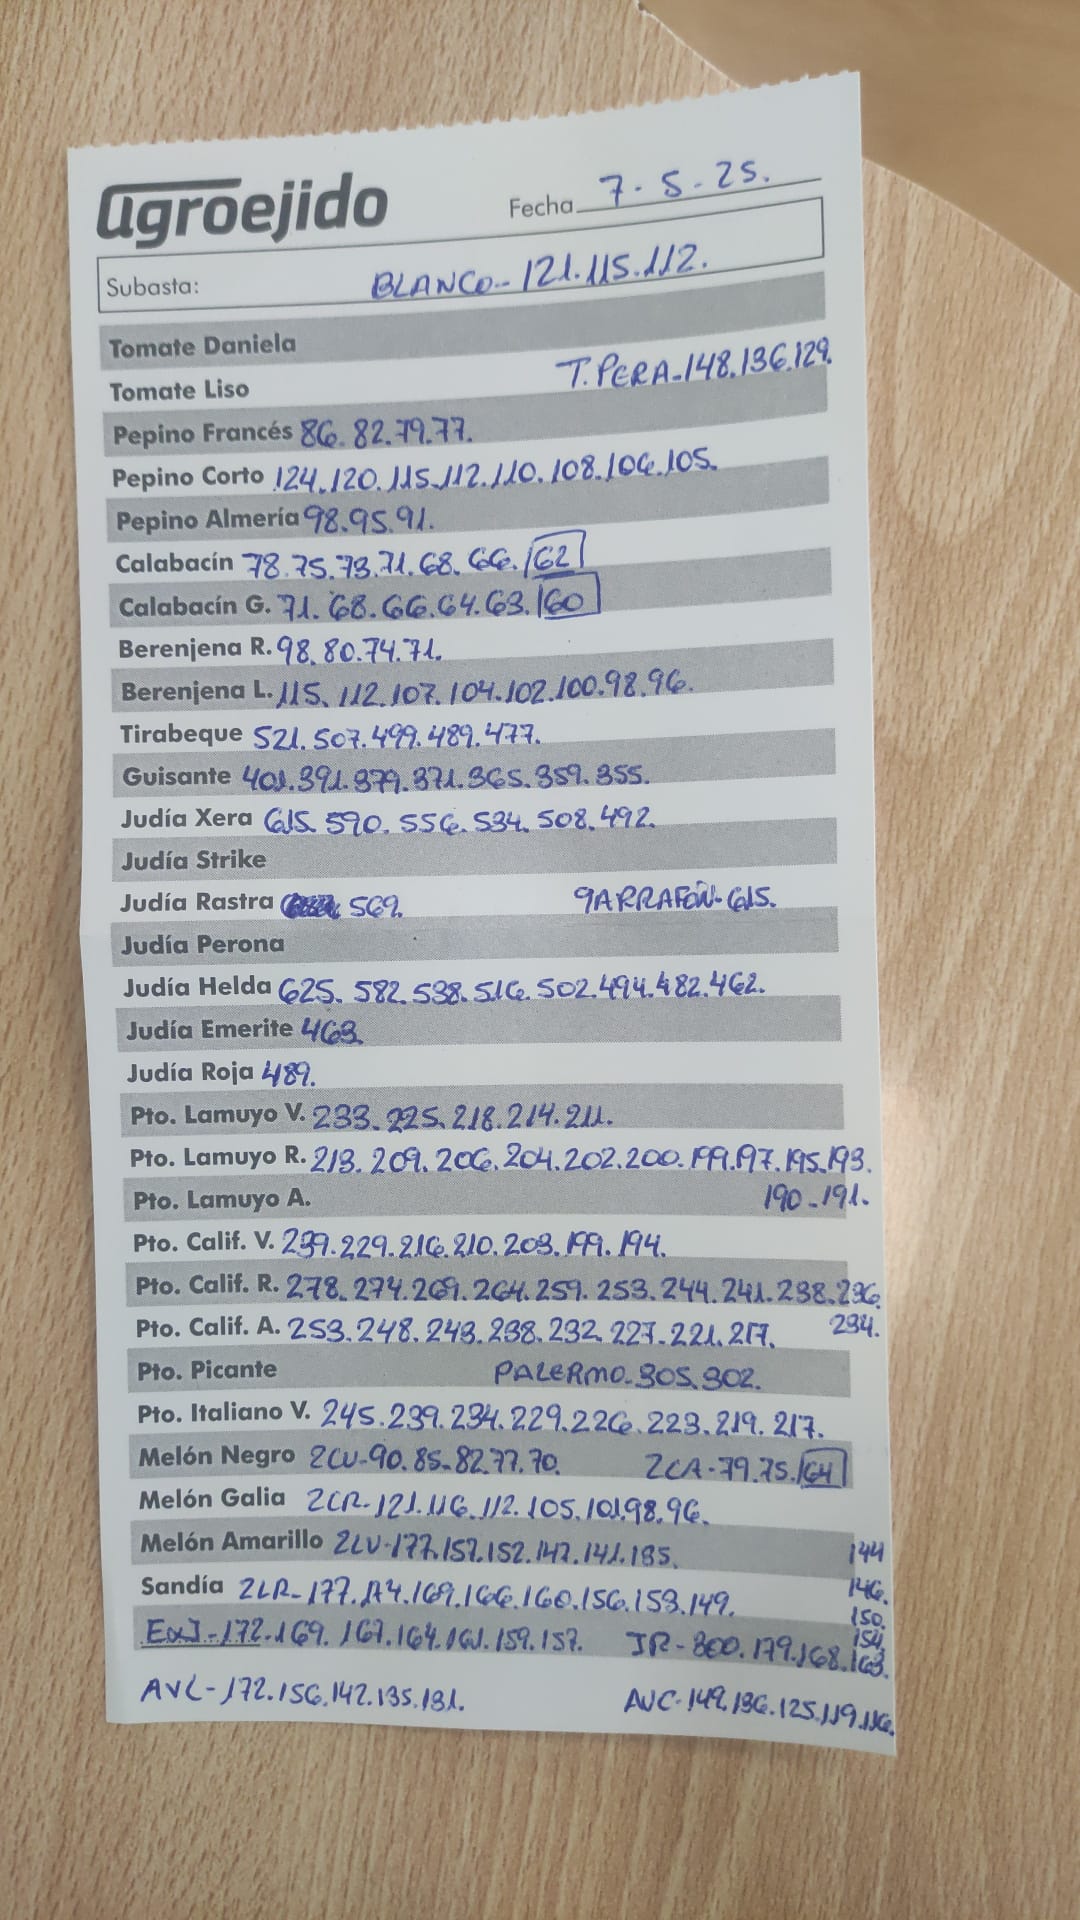 agroejido
Fecha 7.5.25.
Subasta: BLANCO-121.115.112.
Tomate Daniela
Tomate Liso T.PERA-148.136.129.
Pepino Francés 86.82.79.77.
Pepino Corto 124.120.115.112.110.108.106.105.
Pepino Almería 98.95.91.
Calabacín 78.75.73.71.68.66.62
Calabacín G. 71.68.66.64.63.60
Berenjena R. 98.80.74.71.
Berenjena L. 115.112.107.104.102.100.98.96.
Tirabeque 521.507.499.489.477.
Guisante 401.391.379.371.365.359.355.
Judía Xera 615.590.556.534.508.492.
Judía Strike
Judía Rastra 569. GARRAFÓN-615.
Judía Perona
Judía Helda 625.582.538.516.502.494.482.462.
Judía Emerite 463.
Judía Roja 489.
Pto. Lamuyo V. 233.225.218.214.211.
Pto. Lamuyo R. 213.209.206.204.202.200.199.197.195.193.
Pto. Lamuyo A. 190-191.
Pto. Calif. V. 239.229.216.210.203.199.194.
Pto. Calif. R. 278.274.269.264.259.253.244.241.238.236.
Pto. Calif. A. 253.248.243.238.232.227.221.217. 234.
Pto. Picante PALERMO-305.302.
Pto. Italiano V. 245.239.234.229.226.223.219.217.
Melón Negro 2CV-90.85.82.77.70. 2CA-79.75.64
Melón Galia 2CR-121.116.112.105.101.98.96.
Melón Amarillo 2LV-177.157.152.147.141.135. 144
Sandía 2LR-177.174.169.166.160.156.153.149. 146.
150.
154.
ExJ-172.169.167.164.161.159.157. JR-300.179.168.163.
AVL-172.156.142.135.131. AVC-149.136.125.119.116.